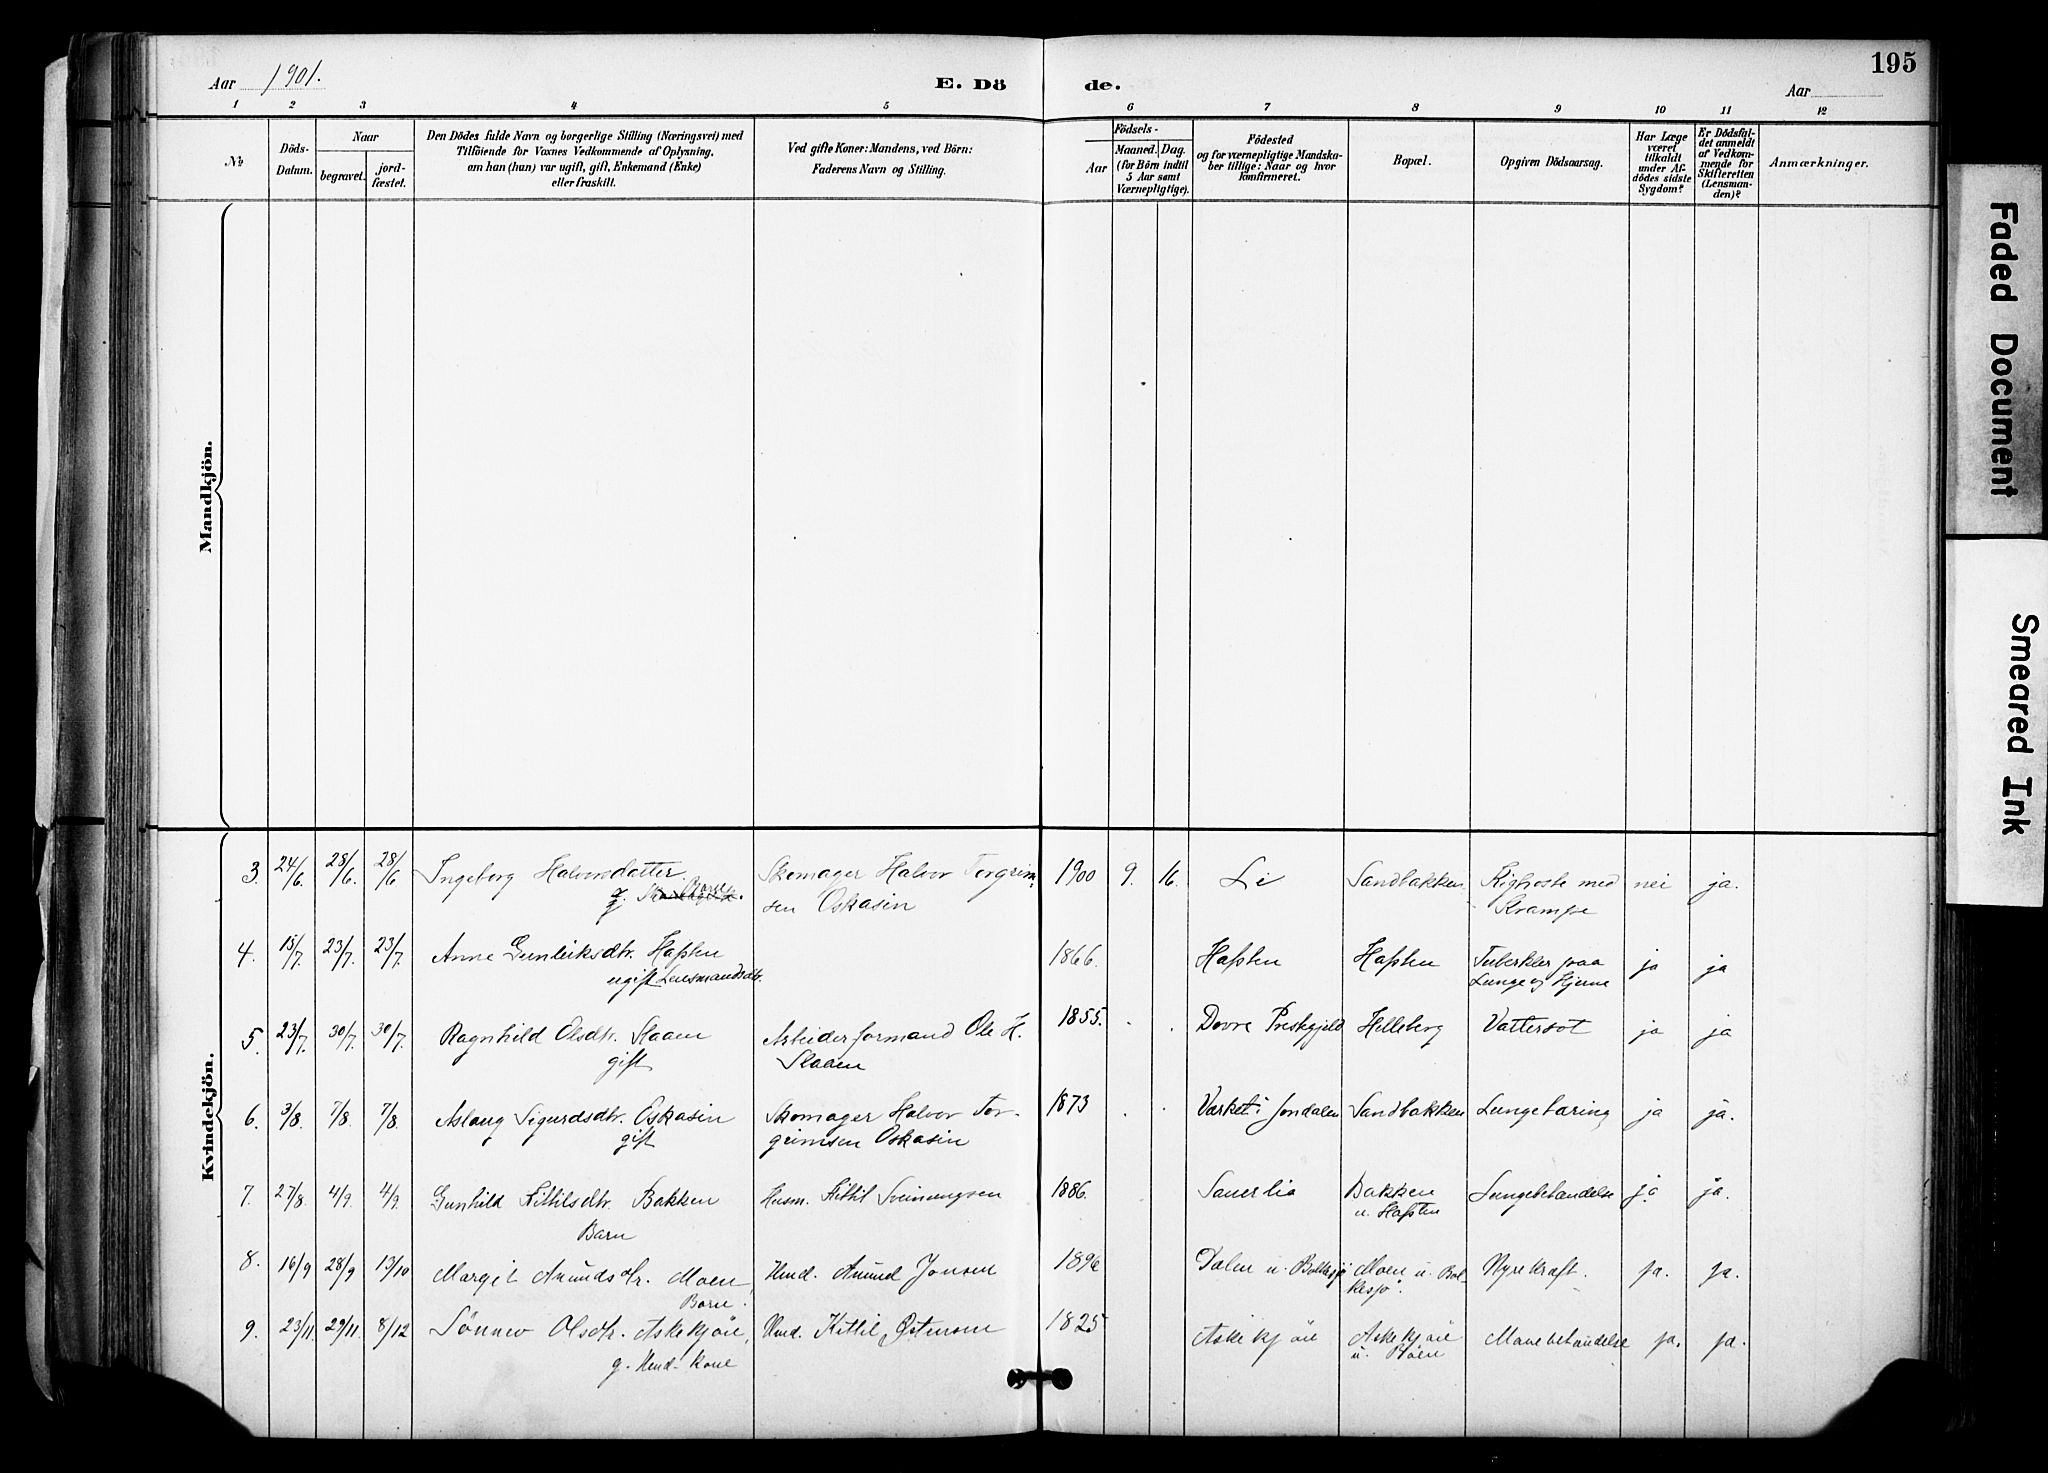 195
Aar 1901.
E. Dö
de.
Aar
1 2 3 4 5 6 7 8 9 10 11 12
№
Döds-
Datum.
Naar
begravet.
jord-
fæstet.
Den Dödes fulde Navn og borgerlige Stilling (Næringsvei) med
Tilföiende for Voxnes Vedkommende af Oplysning,
om han (hun) var ugift, gift, Enkemand (Enke)
eller fraskilt.
Ved gifte Koner: Mandens, ved Börn:
Faderens Navn og Stilling.
Födsels-
Aar
Maaned. Dag.
(for Börn indtil
5 Aar samt
Værnepligtige).
Födested
og for værnepligtige Mandska-
ber tillige: Naar og hvor
konfirmeret.
Bopæl.
Opgiven Dödsaarsag.
Har Læge
været
tilkaldt
under Af-
dödes sidste
Sygdom?
Er Dödsfal-
det anmeldt
af Vedkom-
mende for
Skifteretten
(Lensman-
den)?
Anmærkninger.
Mandkjön.
Kvindekjön.
3. 24/6 28/6. 28/6 Ingeborg Halvorsdatter. Skomager Halvor Torgrim- 1900 9. 16. Li Sandbakken Kighoste med nei ja.
Barn
sen Oskasin Krampe
4. 15/7. 23/7. 23/7. Anne Gunleiksdtr. Haften 1866. Haften Haften Tuberkler paa ja ja
ugift Lensmandsdtr. Lunge og Hjerne
5. 23/7. 30/7. 30/7. Ragnhild Olsdtr. Slaaen Arbeiderformand Ole H. 1855. Dovre Prestegjeld Helleberg Vattersot ja ja
gift Slaaen
6. 3/8. 7/8. 7/8. Aslaug Sigurdsdtr. Oskasin Skomager Halvor Tor- 1873 Værket i Jondalen Sandbakken Lungetæring ja ja.
gift grimsen Oskasin
7. 27/8. 4/9. 4/9. Gunhild Kittilsdtr. Bakken Husm. Kittil Sveinungsen 1886. Sauerlia Bakken Lungebetændelse ja ja.
Barn u. Haften
8. 16/9 28/9 13/10 Margit Amunds dtr. Moen, Hmd. Amund Jonsen 1896 Dalen u. Bolkesjø Moen u. Bol- Nyrekræft. ja. ja.
Barn. kesjø.
9. 23/11. 29/11 8/12 Sønnev Olsdtr. Askekjøn, Hmd. Kittil Østensen 1825 Askekjøn Askekjøn Mavebetændelse ja. ja.
g. Hmd. kone u. Bøen
Faded Document
Smeared Ink